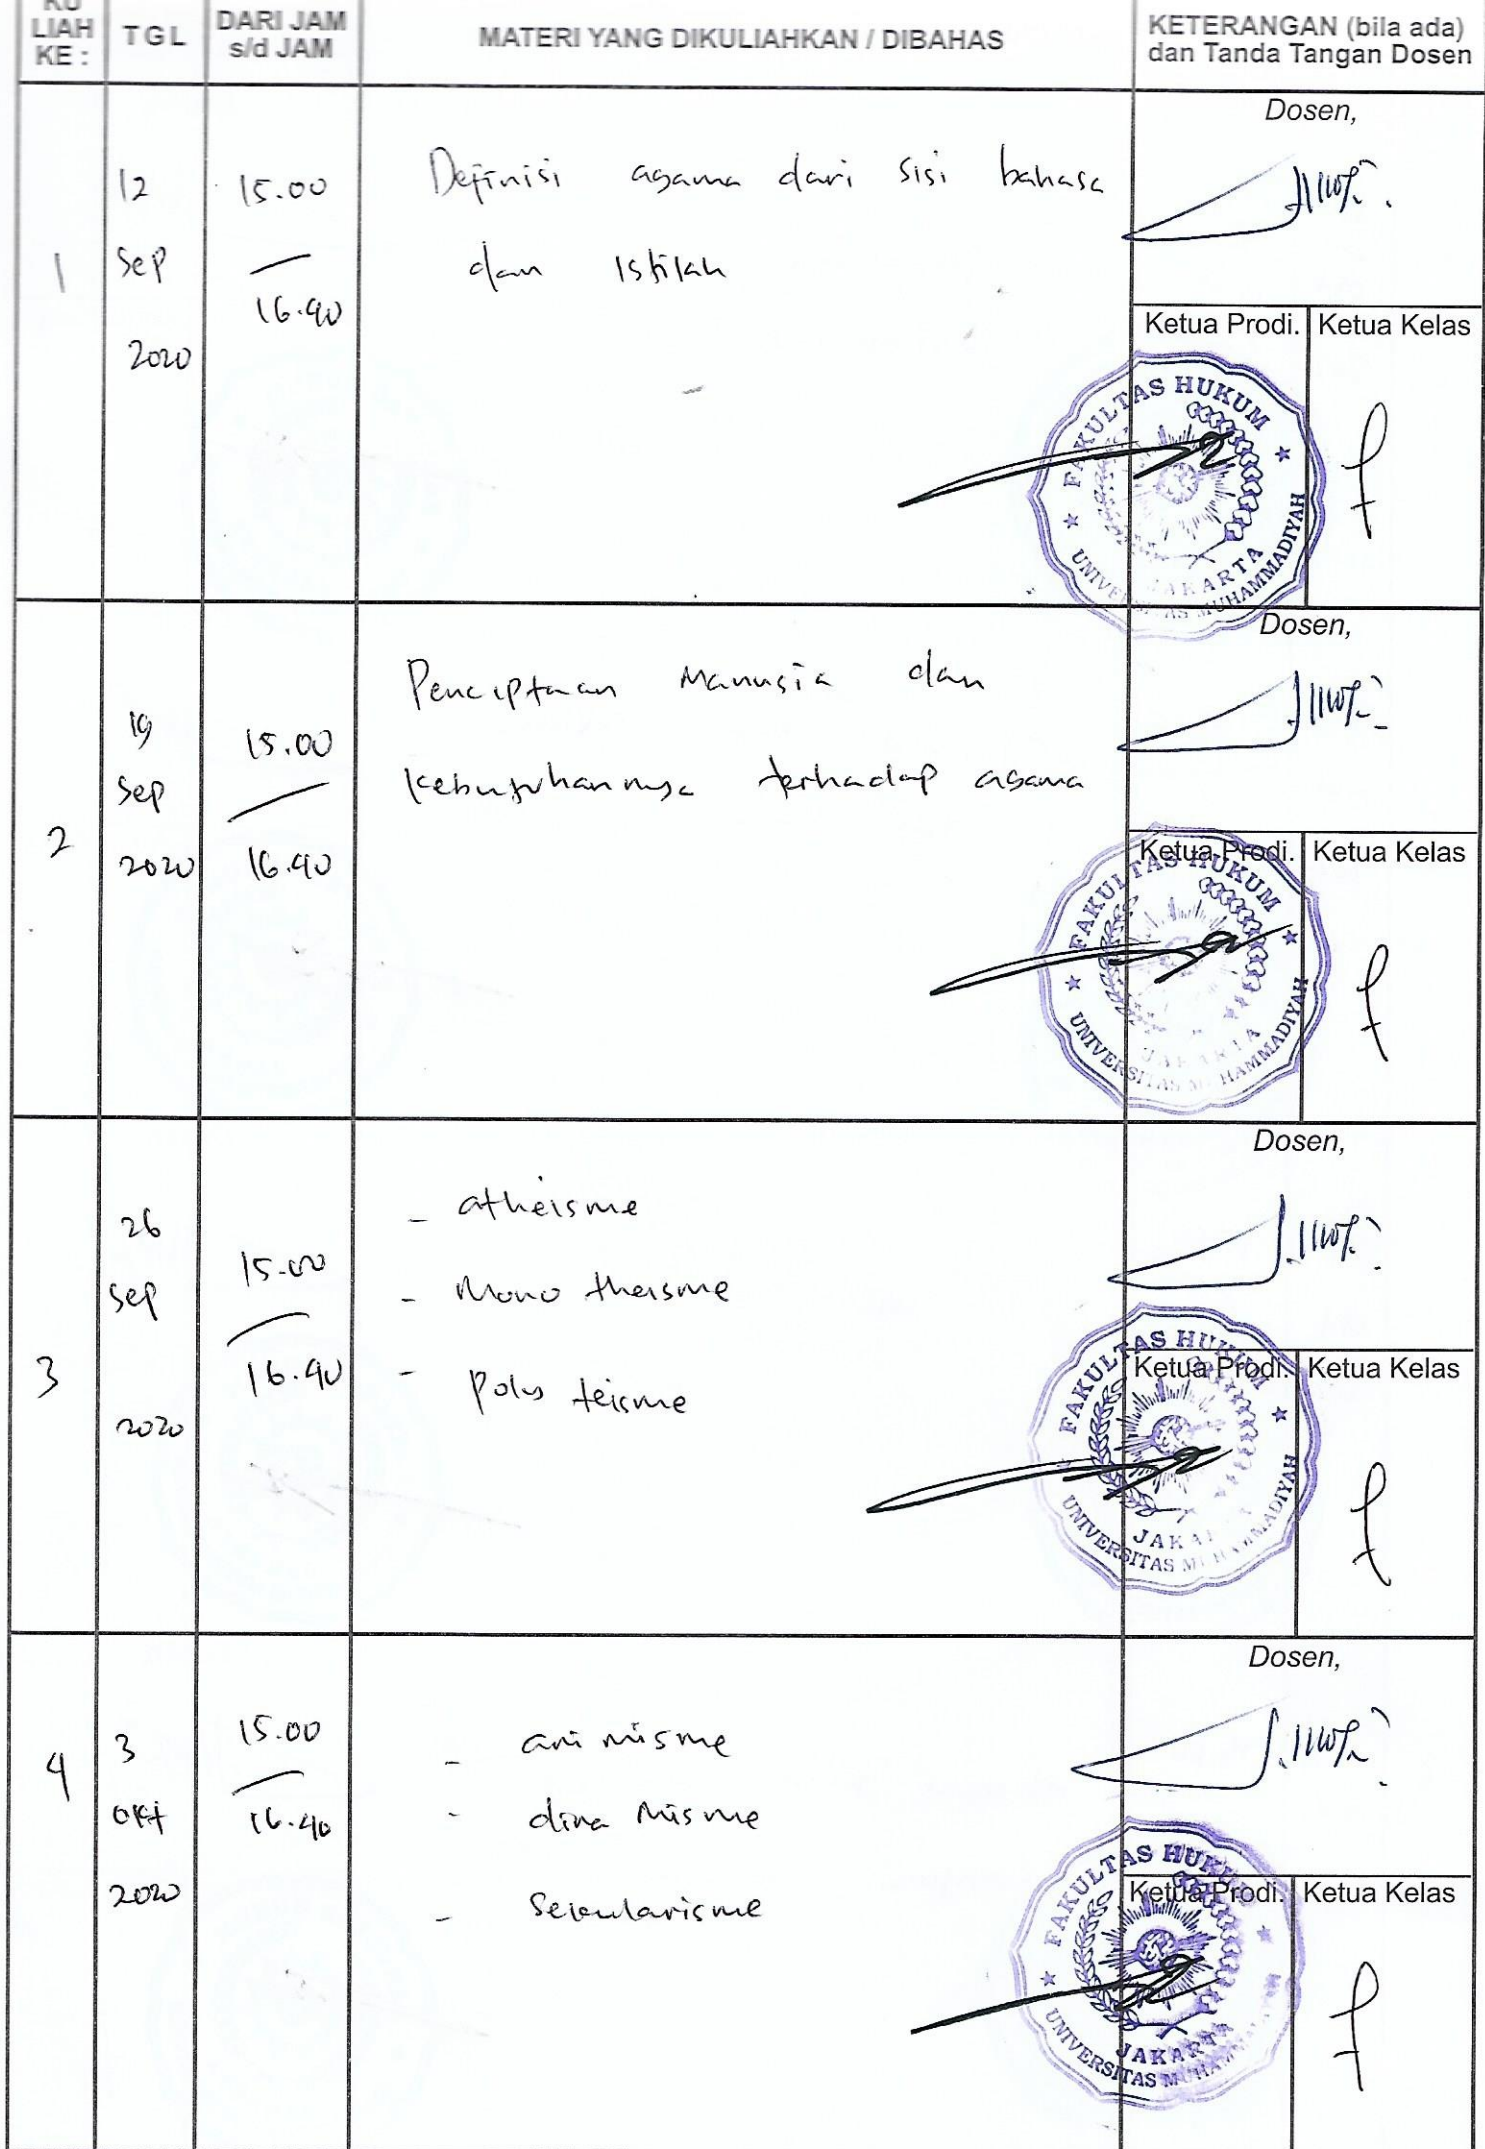 KU
LIAH
KE :
TGL
DARI JAM
s/d JAM
MATERI YANG DIKULIAHKAN / DIBAHAS
KETERANGAN (bila ada)
dan Tanda Tangan Dosen
1
12
Sep
2020
15.00
16.40
Definisi agama dari sisi bahasa
dan Istilah
Dosen,
Ketua Prodi.
Ketua Kelas
FAKULTAS HUKUM
UNIVERSITAS MUHAMMADIYAH
JAKARTA
2
19
Sep
2020
15.00
16.40
Penciptaan Manusia dan
Kebutuhannya terhadap agama
Dosen,
Ketua Prodi.
Ketua Kelas
FAKULTAS HUKUM
UNIVERSITAS MUHAMMADIYAH
JAKARTA
3
26
Sep
2020
15.00
16.40
- atheisme
- Mono theisme
- Poly teisme
Dosen,
Ketua Prodi.
Ketua Kelas
FAKULTAS HUKUM
UNIVERSITAS MUHAMMADIYAH
JAKARTA
4
3
Okt
2020
15.00
16.40
- ani misme
- dina misme
- Sekularisme
Dosen,
Ketua Prodi.
Ketua Kelas
FAKULTAS HUKUM
UNIVERSITAS MUHAMMADIYAH
JAKARTA